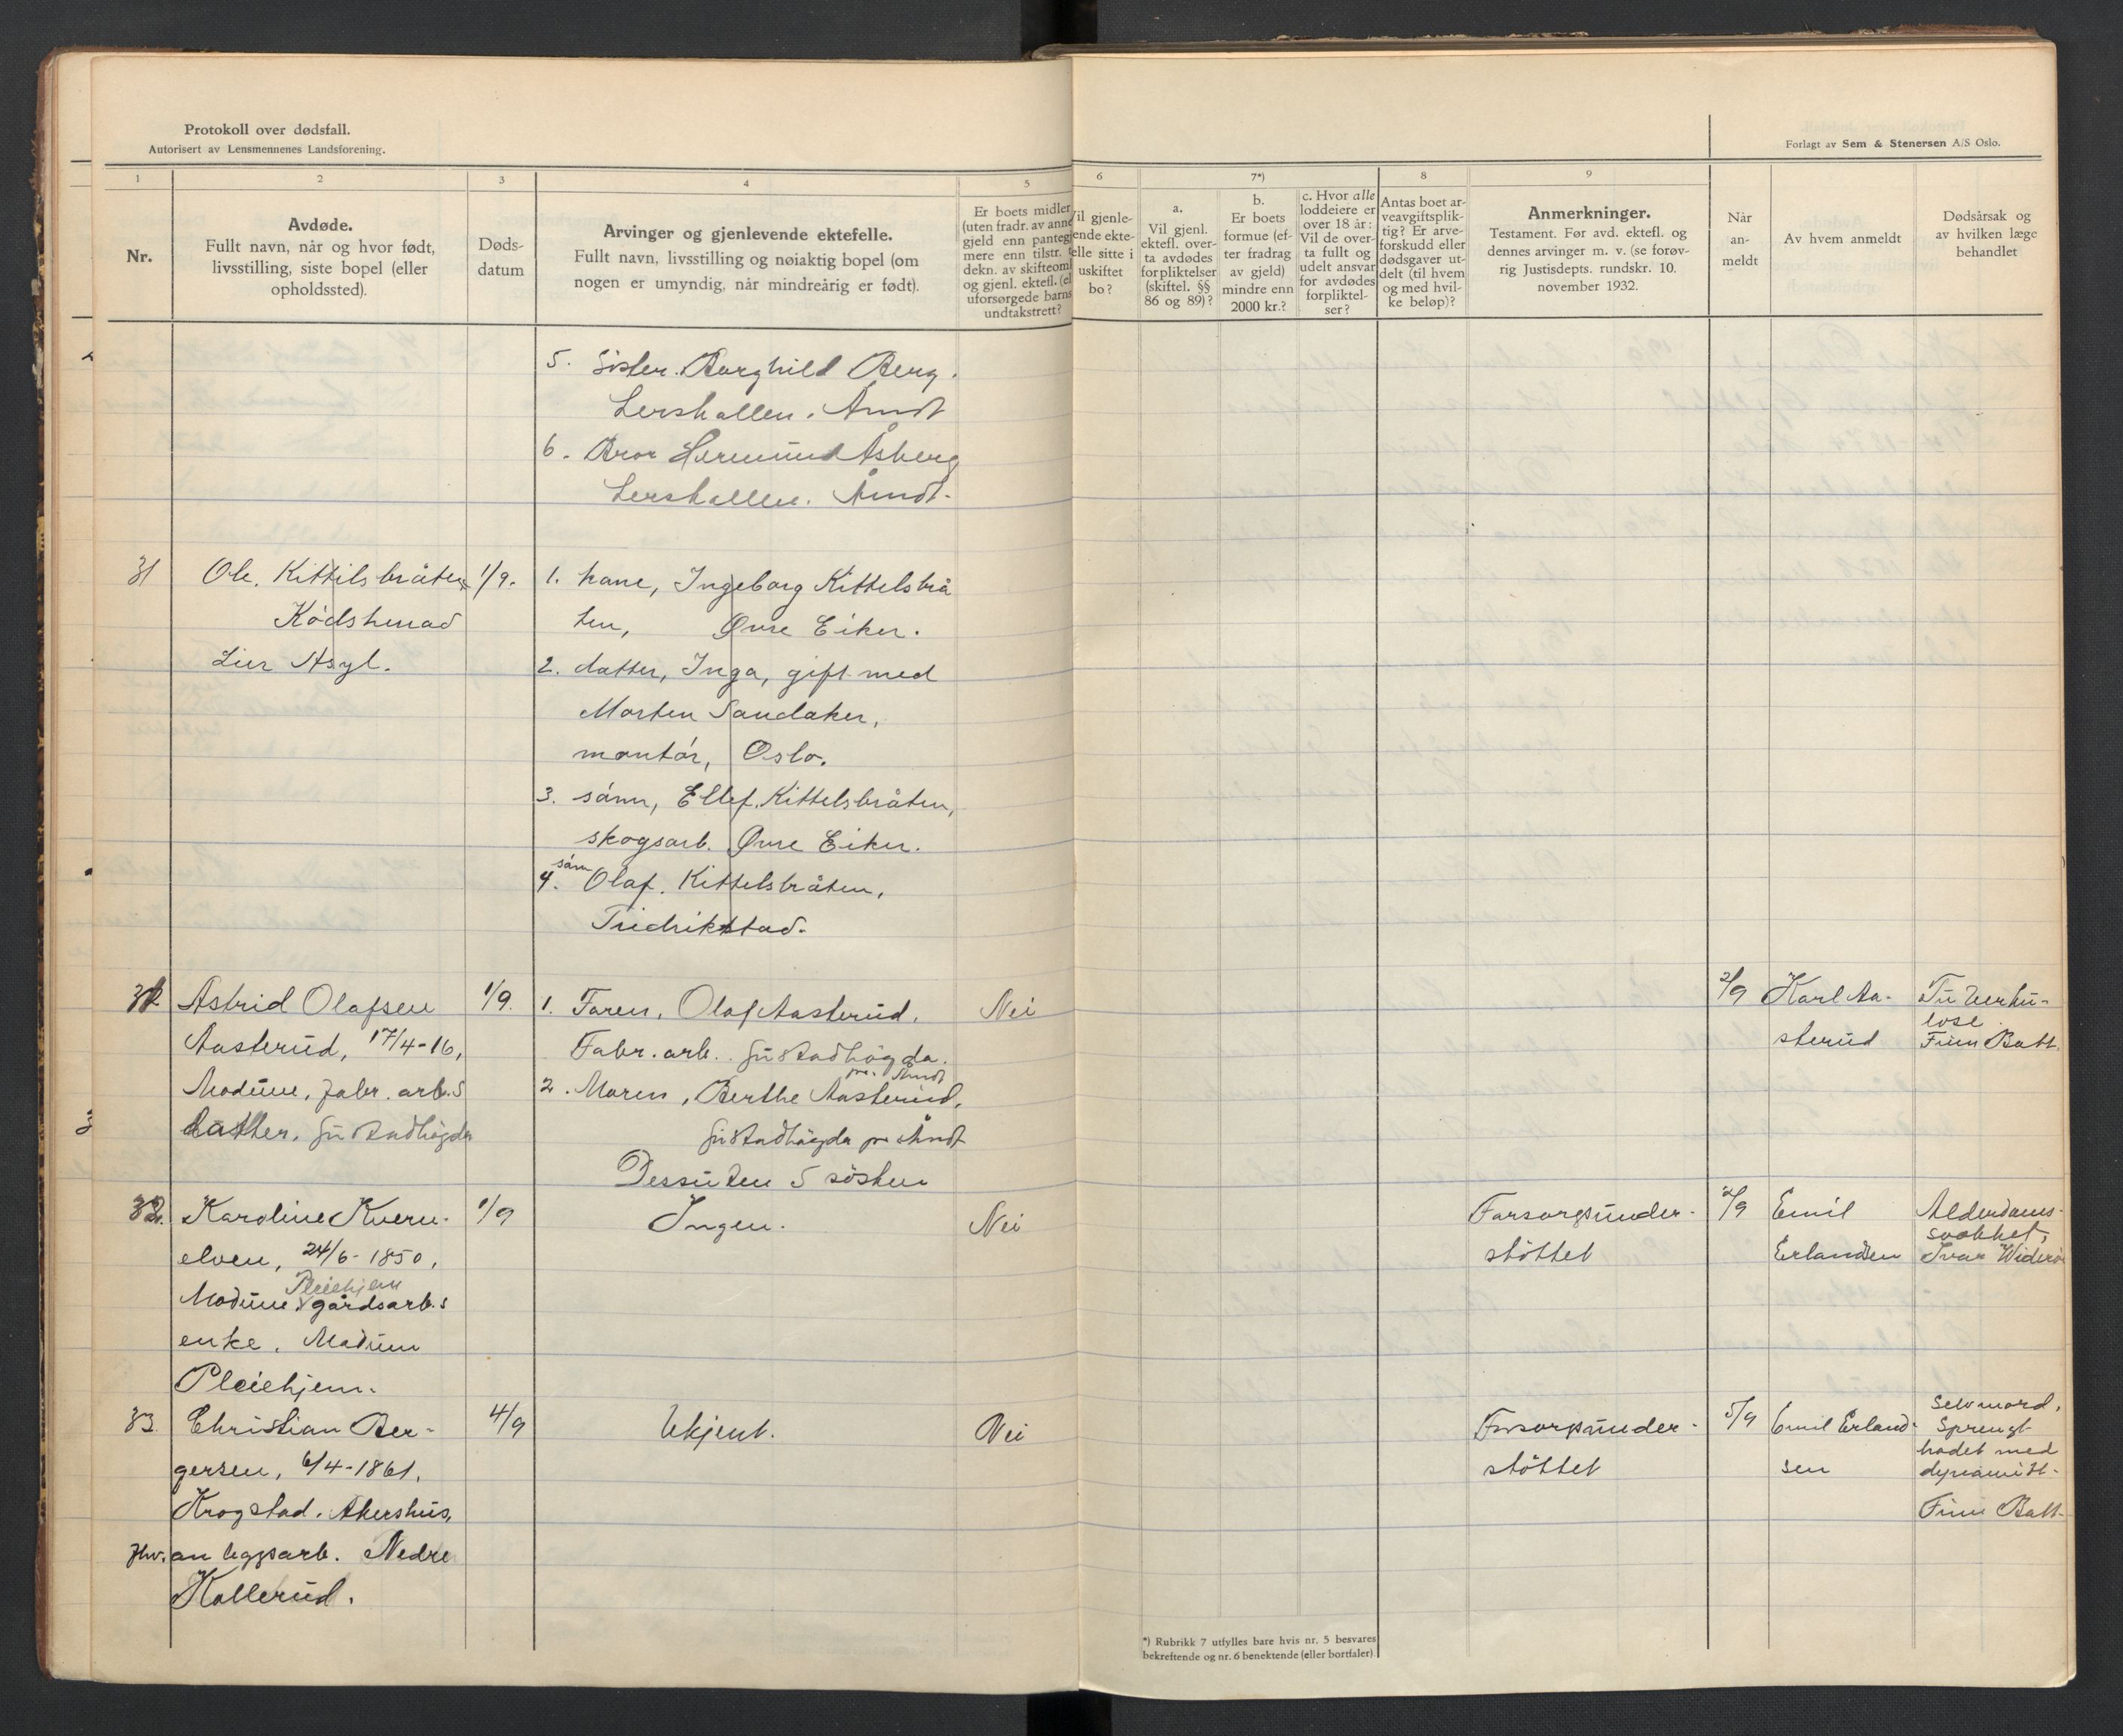 Protokoll over dødsfall.
Autorisert av Lensmennenes Landsforening.
Forlagt av Sem & Stenersen A/S Oslo.
1
Nr.
2
Avdøde.
Fullt navn, når og hvor født,
livsstilling, siste bopel (eller
opholdssted).
3
Døds-
datum
4
Arvinger og gjenlevende ektefelle.
Fullt navn, livsstilling og nøiaktig bopel (om
nogen er umyndig, når mindreårig er født).
5
Er boets midler
(uten fradr. av anne
gjeld enn panteg
mere enn tilstr.
dekn. av skifteom
og gjenl. ektefl. (el
uforsørgede barns
undtakstrett?
6
Vil gjenle-
ende ekte-
elle sitte i
uskiftet
bo?
7*)
a.
Vil gjenl.
ektefl. over-
ta avdødes
forpliktelser
(skiftel. §§
86 og 89)?
b.
Er boets
formue (ef-
ter fradrag
av gjeld)
mindre enn
2000 kr.?
c. Hvor alle
loddeiere er
over 18 år:
Vil de over-
ta fullt og
udelt ansvar
for avdødes
forpliktel-
ser?
8
Antas boet ar-
veavgiftsplik-
tig? Er arve-
forskudd eller
dødsgaver ut-
delt (til hvem
og med hvil-
ke beløp)?
9
Anmerkninger.
Testament. Før avd. ektefl. og
dennes arvinger m. v. (se forøv-
rig Justisdepts. rundskr. 10.
november 1932.
Når
an-
meldt
Av hvem anmeldt
Dødsårsak og
av hvilken læge
behandlet
5. Søster. Borghild Berg.
Lershallen. Åmot
6. Bror Hermund Åsberg
Lershallen. Åmot.
31 Ole. Kittilsbråten 1/9.
Lier Asyl.
1. kone, Ingeborg Kittelsbrå
ten, Øvre Eiker.
2. datter, Inga, gift med
Morten Sandaker,
montør, Oslo.
3. sønn, Ellef. Kittelsbråten,
skogsarb. Øvre Eiker.
sønn
4. Olaf. Kittelsbråten,
Fredrikstad.
Astrid Olafsen 1/9.
Aasterud, 17/4-16,
Modum, fabr. arb.s
datter. Gustadhøgda
1. Faren, Olaf Aasterud.
Fabr. arb. Gustadhøgda.
pr. Åmot
2. Moren, Berthe Aasterud,
Gustadhøgda pr Åmot
Dessuten 5 søsken
Nei
2/9 Karl Aa-
sterud
Tuberku-
lose
Finn Batt.
32. Karoline Kvern- 1/9
elven, 24/6-1850,
Pleiehjem
Modum. gårdsarb.s
enke. Modum
Pleiehjem.
Ingen.
Nei
Forsorgsunder-
støttet
2/9 Emil
Erlandsen
Alderdoms-
svakhet,
Ivar Widerø
33. Christian Ber- 4/9
gersen, 6/4-1861,
Krogstad. Akershus,
anleggsarb. Nedre
Kollerud.
Ukjent.
Nei
Forsorgsunder-
støttet
5/9 Emil Erland-
sen
Selvmord,
Sprengt
hodet med
dynamitt.
Finn Batt.
*) Rubrikk 7 utfylles bare hvis nr. 5 besvares
bekreftende og nr. 6 benektende (eller bortfaler)